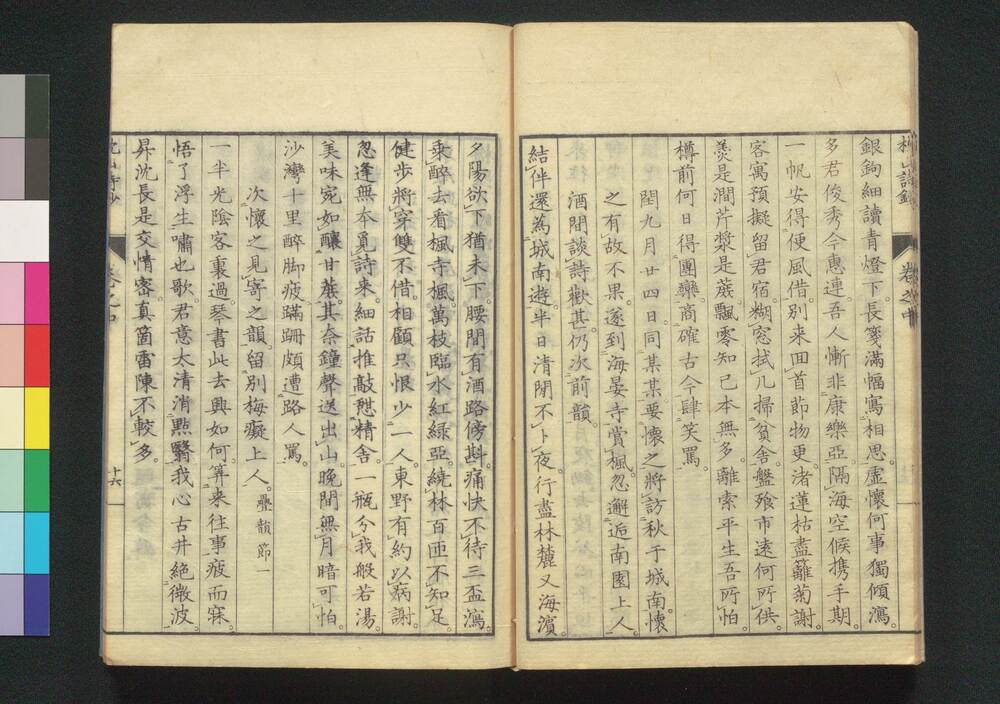 銀鉤細讀青燈下。長箋滿幅寫相思。虛懷何事獨傾瀉。
多君俊秀今惠連。吾人慚非康樂亞。隔海空候携手期。
一帆安得便風借。別來回首節物更。渚蓮枯盡籬菊謝。
客寓預擬留君宿。糊窓拭几掃貧舍。盤飧市遠何所供。
羹是澗芹漿是蔗。飄零知己本無多。離索平生吾所怕。
樽前何日得團欒。商確古今肆笑罵。
閏九月廿四日同某某要懷之將訪秋于城南。懷
之有故不果。遂到海晏寺賞楓。忽邂逅南園上人。
酒間談詩歡甚。仍次前韻。
結伴還為城南遊。半日清閒不卜夜。行盡林麓又海濱。
夕陽欲下猶未下。腰間有酒路傍斟。痛快不待三盃瀉。
乘醉去看楓寺楓。萬枝臨水紅綠亞。繞林百匝不知足。
健步將穿雙不借。相顧只恨少一人。東野有約以病謝。
忽逢無本覓詩來。細話推敲愁精舍。一瓶分我般若湯。
美味宛如釀甘蔗。其奈鐘聲送出山。晚間無月暗可怕。
沙灣十里醉脚疲。蹣跚頗遭路人罵。
次懷之見寄之韻。留別梅癡上人。疊韻節一
一半光陰客裏過。琴書此去興如何。算来往事疲而寐。
悟了浮生嘯也歌。君意太清消點翳。我心古井絕微波。
昇沈長是交情密。真箇雷陳不較多。
卷之中
十六